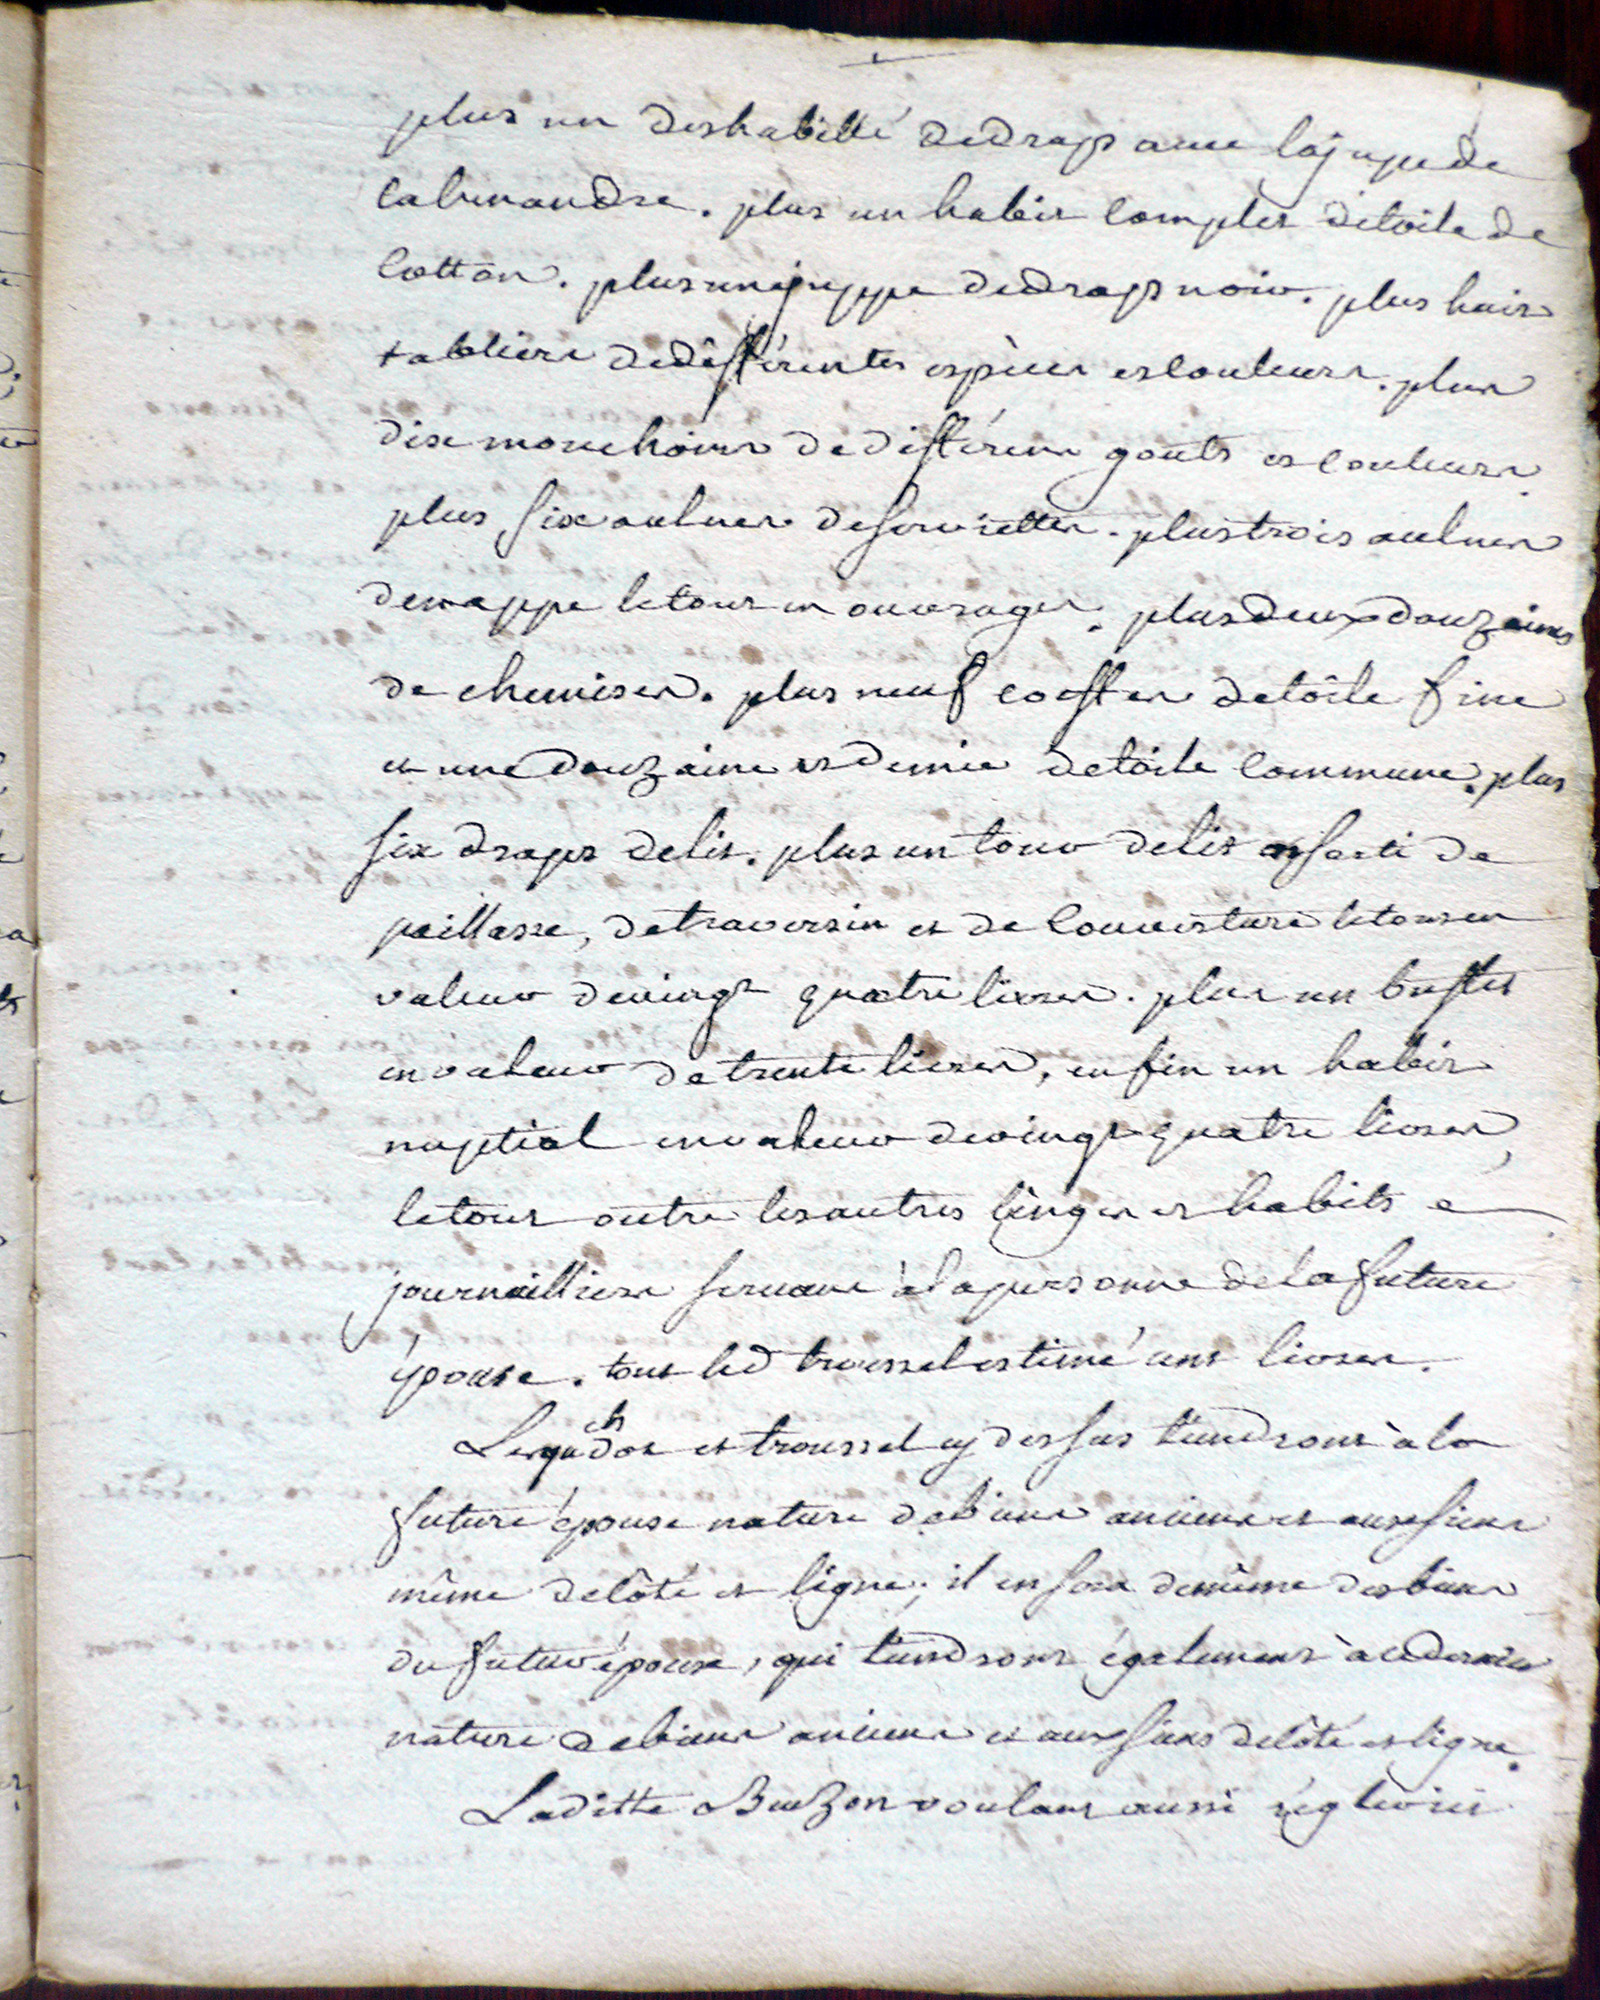 plus un deshabillé de drap avec la jupe de
calmandre. plus un habit complet de toile de
cotton. plus une juppe de drap noir. plus huit
tabliers de différentes espèces et couleurs. plus
dix mouchoirs de différens gouts et couleurs.
plus six aulnes de serviettes. plus trois aulnes
de nappe le tout en ouvrages. plus deux douzaines
de chemises. plus neuf coeffes de toile fine
et une douzaine et demie de toile commune. plus
six draps de lit. plus un tour de lit assorti de
paillasse, de traversin et de couverture le tout en
valeur de vingt quatre livres. plus un buffet
en valeur de trente livres, enfin un habit
nuptial en valeur de vingt quatre livres,
le tout outre les autres linges et habits
journailliers servant à la personne de la future
épouse. tout led troussel estimé cent livres.
dot et troussel cy dessus tiendront à la
future épouse nature de biens anciens et aux siens
même de côté et ligne; il en sera de même des biens
du futur époux, qui tiendront également à ce dernier
nature de biens anciens et aux siens de côté et ligne.
Laditte Buzon voulant aussi